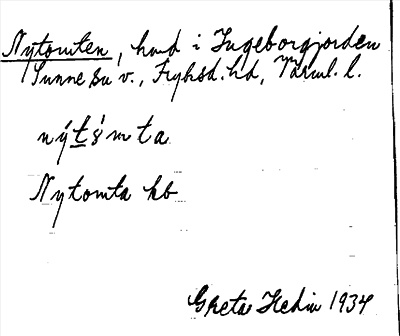 Nytomten, hmd i Ingeborgjorden
Sunne sn v., Fryksd. hd, Värml. l.
Nytomta kb
Greta Hedin 1934